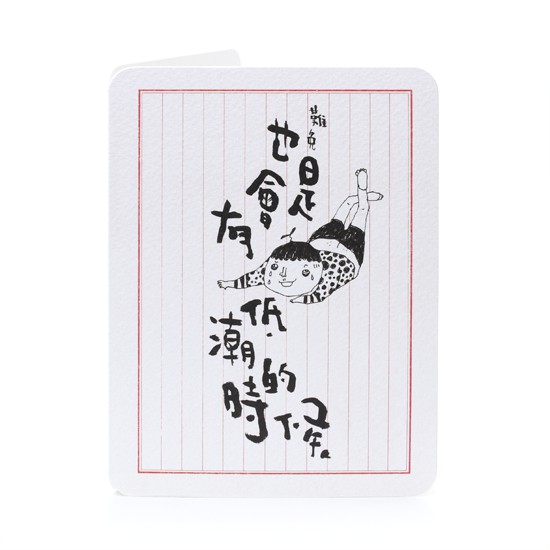 難免
也是
會
有
低
潮
的
時候。